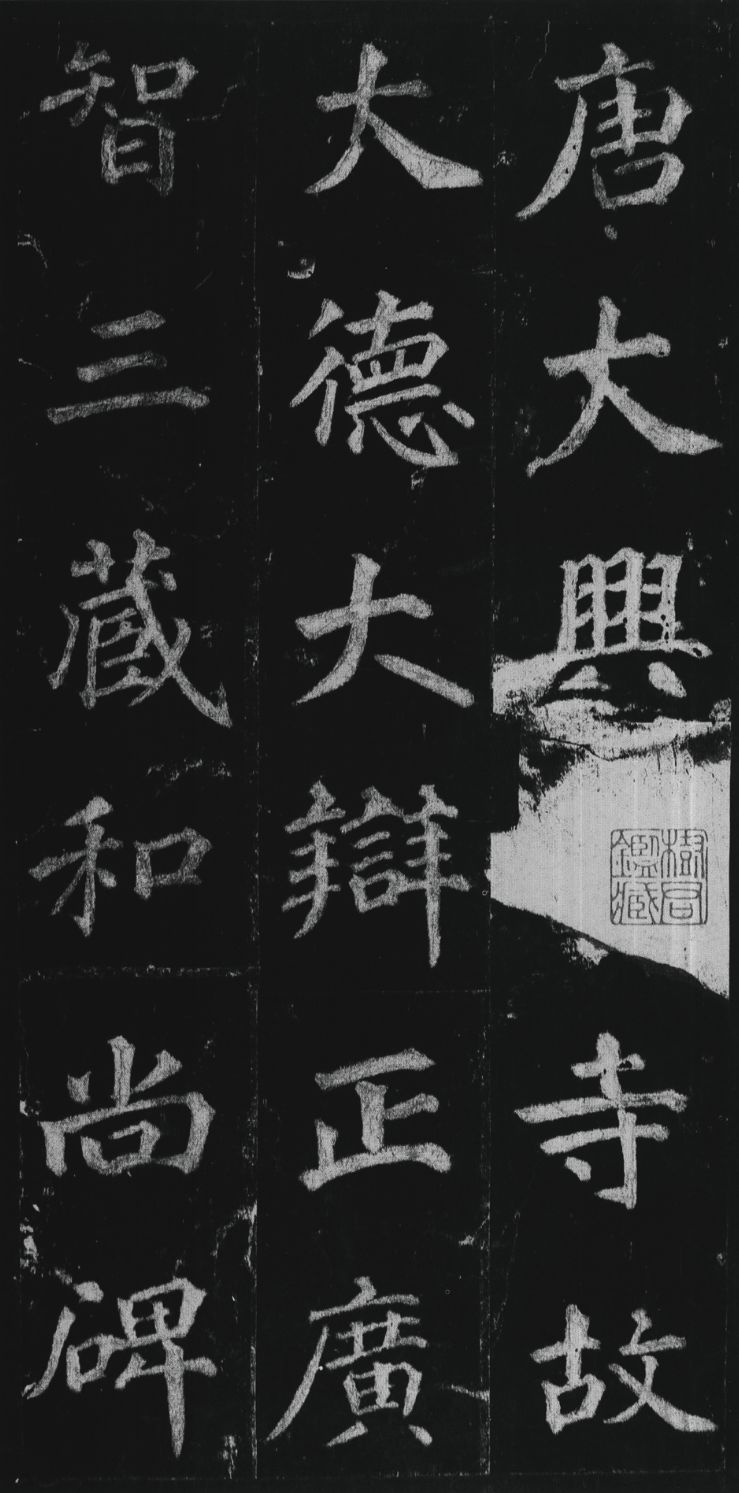 唐大興寺故
大德大辯正廣
智三藏和尚碑
樹君
鑑藏